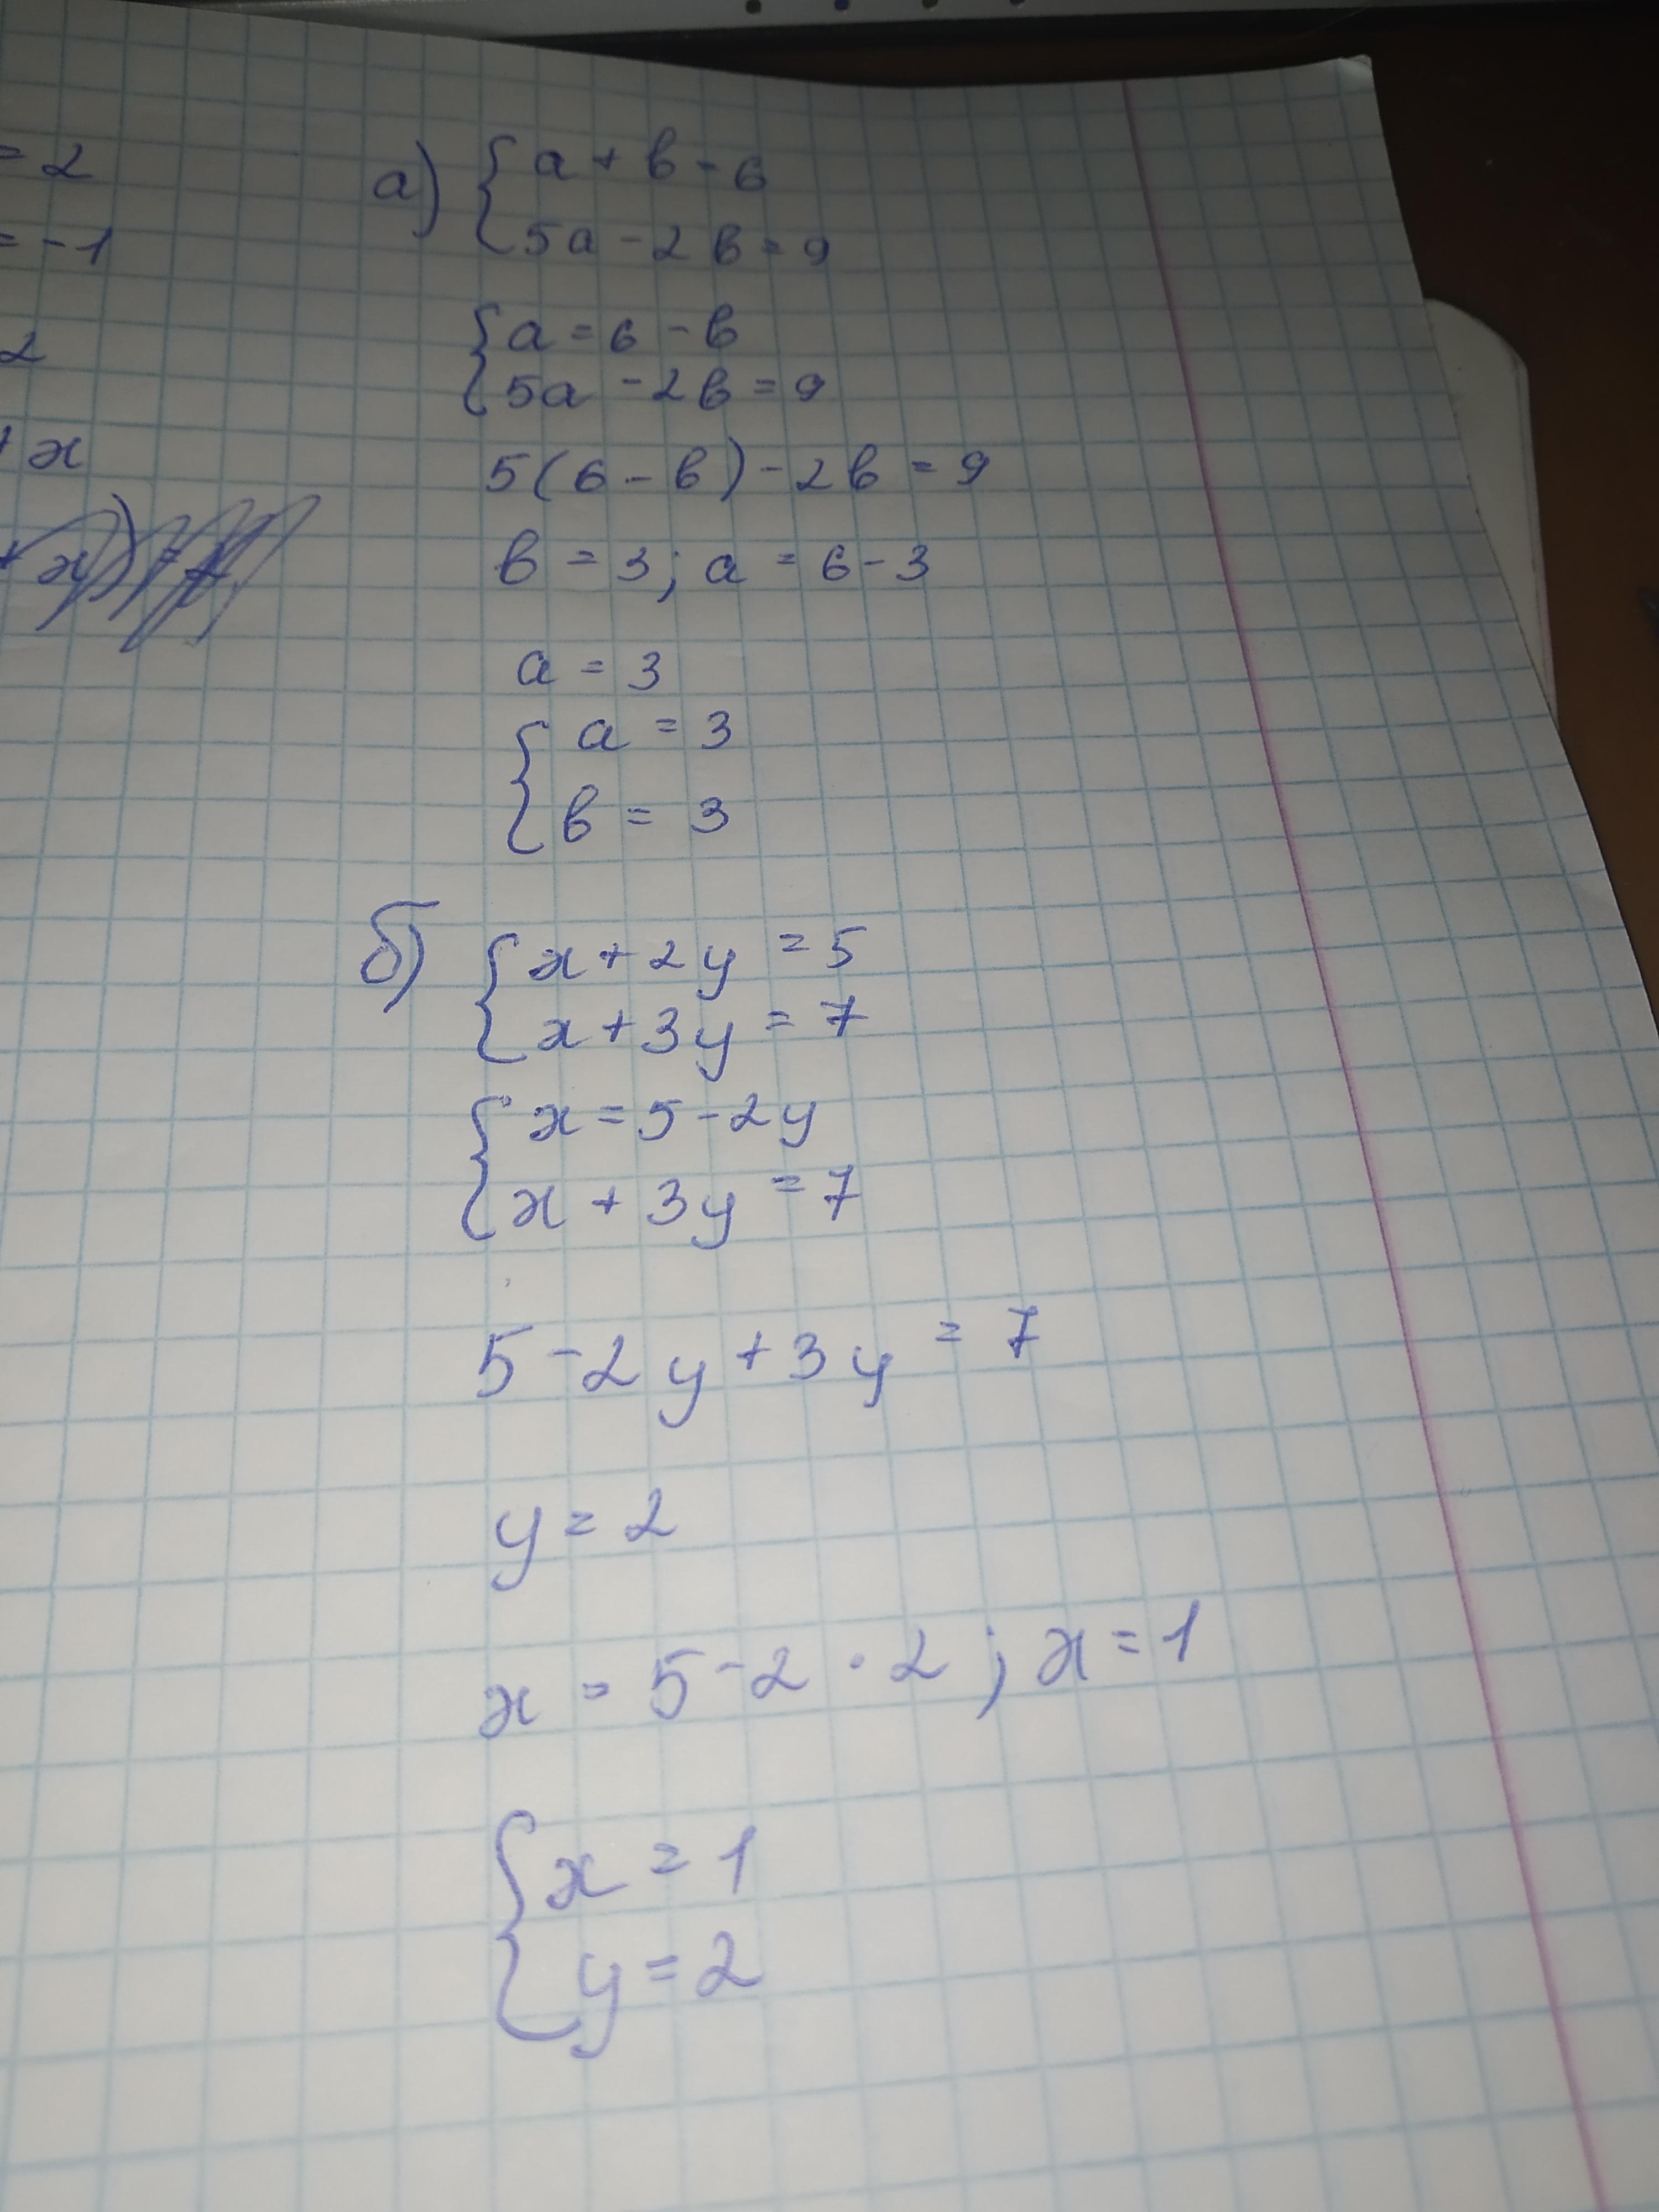 = 2
= -1
2
+ x
а) { a + b = 6
5a - 2b = 9
{ a = 6 - b
5a - 2b = 9
5(6 - b) - 2b = 9
b = 3; a = 6 - 3
a = 3
{ a = 3
b = 3
б) { x + 2y = 5
x + 3y = 7
{ x = 5 - 2y
x + 3y = 7
5 - 2y + 3y = 7
y = 2
x = 5 - 2 · 2; x = 1
{ x = 1
y = 2